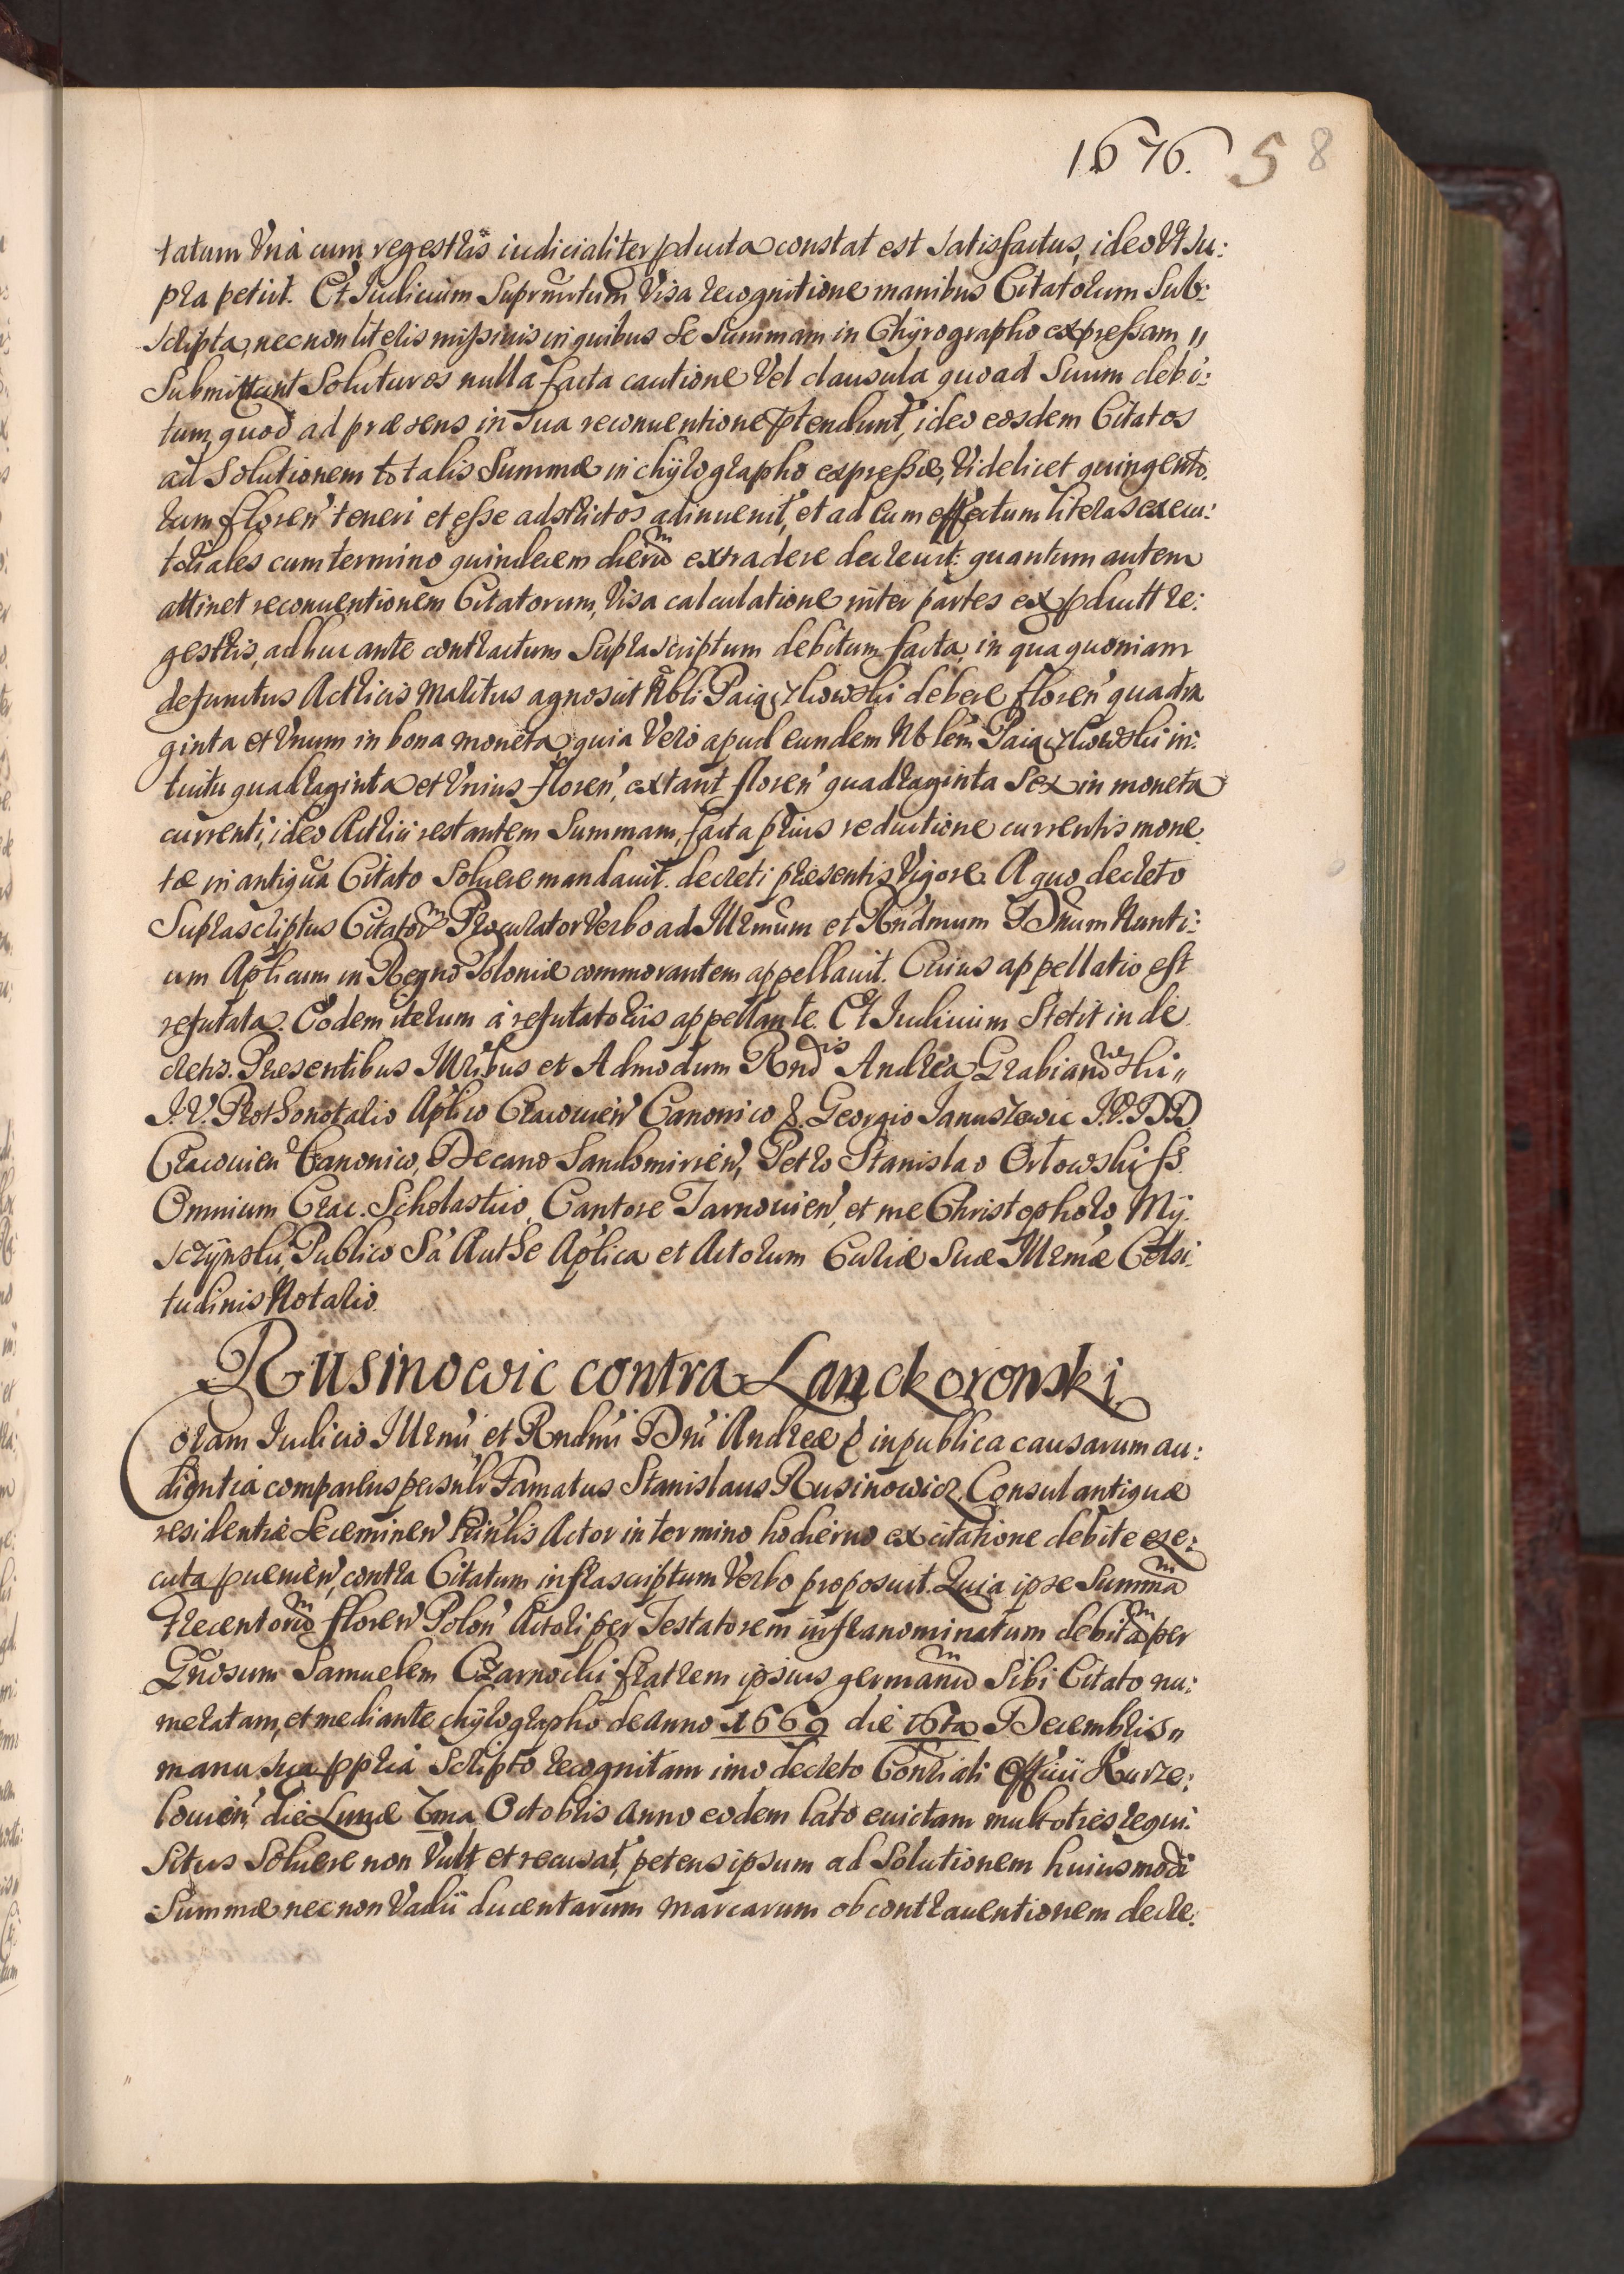 1676. 58
tatum Vna cum regestris iudicialiter pducta constat est satisfactus, ideo Vt su:
pra petiit. Et Iudicium Suprnŭtum Visa recognitione manibus Citatorum Sub:
scripta, necnon literis missiuis in quibus se Summam in Chÿrographo expressam "
Submittunt Soluturos nulla facta cautione Vel clausula quoad Suum debi:
tum, quod ad præsens in sua reconuentione ptendunt, ideo eosdem Citatos
ad Solutionem totalis Summæ in chÿrographo expressæ, Videlicet quingento:
rum floren' teneri et esse adstrictos adinuenit, et ad eum effectum literas execu:
toriales cum termino quindecem dierũ extradere decreuit: quantum autem
attinet reconuentionem Citatorum, Visa calculatione inter partes ex pductt re:
gestris, adhuc ante contractum Suprascriptum debitum facta, in qua quoniam
defunctus Actricis Maritus agnoscit Nbli Paiączkowski debere floren' quadra
ginta et Vnum in bona moneta, quia Vero apud eundem Nblem Paiączkowski in:
tuitu quadraginta et Vnius floren', extant floren' quadraginta Sex in moneta
currenti, ideo Actrici restantem Summam, facta prius reductione currentis mone:
tæ in antiquã Citato Soluere mandauit. decreti presentis Vigore. A quo decreto
Suprascriptus Citatorũ Procurator Verbo ad Illrmum et Rndmum Dnum Nunti:
um Aplicum in Regno Poloniæ commorantem appellauit. Cuius appellatio est
refutata. Eodem iterum à refutatoriis appellante. Et Iudicium Stetit in de
cretis. Presentibus Illribus et Admodum Rndis Andrea Grabianowski "
I.V. Prothonotario Aplico Cracouien' Canonico &. Georgio Januszowic I.V.DD
Cracouien' Canonico, Decano Sandomirien', Petro Stanislao Orłowski ss.
Omnium Crac. Scholastico, Cantore Tarnouien', et me Christophoro Mÿ:
szczÿnski, Publico Sa Authe Aplica et Actorum Curiæ Suæ Illrmæ Celsi:
tudinis Notario.
Rusinowic contra Lanckoronski
Coram Iudicio Illrmi et Rndmi Dni Andreæ & in publica causarum au:
dientia comparens persnlr Famatus Stanislaus Rusinowicz Consul antiquæ
residentiæ Seceminen' Prinlis Actor in termino hodierno ex citatione debite exe:
cuta puenien', contra Citatum infrascriptum Verbo proposuit. Quia ipse Summã
trecentorũ floren' Polon' Actori per Testatorem infranominatum debitã per
Gnosum Samuelem Czarnocki fratrem ipsius germanũ Sibi Citato nu:
meratam, et mediante chÿrographo de Anno 1669 die 16ta Decembris "
manu sua ppria Scripto recognitam imo decreto Consiali Officii Kurze:
louien' die Lunæ 7ma Octobris Anno eodem lato euictam multoties requi:
situs Soluere non Vult et recusat, petens ipsum ad Solutionem huiusmodi
Summæ nec non Vadii ducentarum marcarum ob contrauentionem decre: